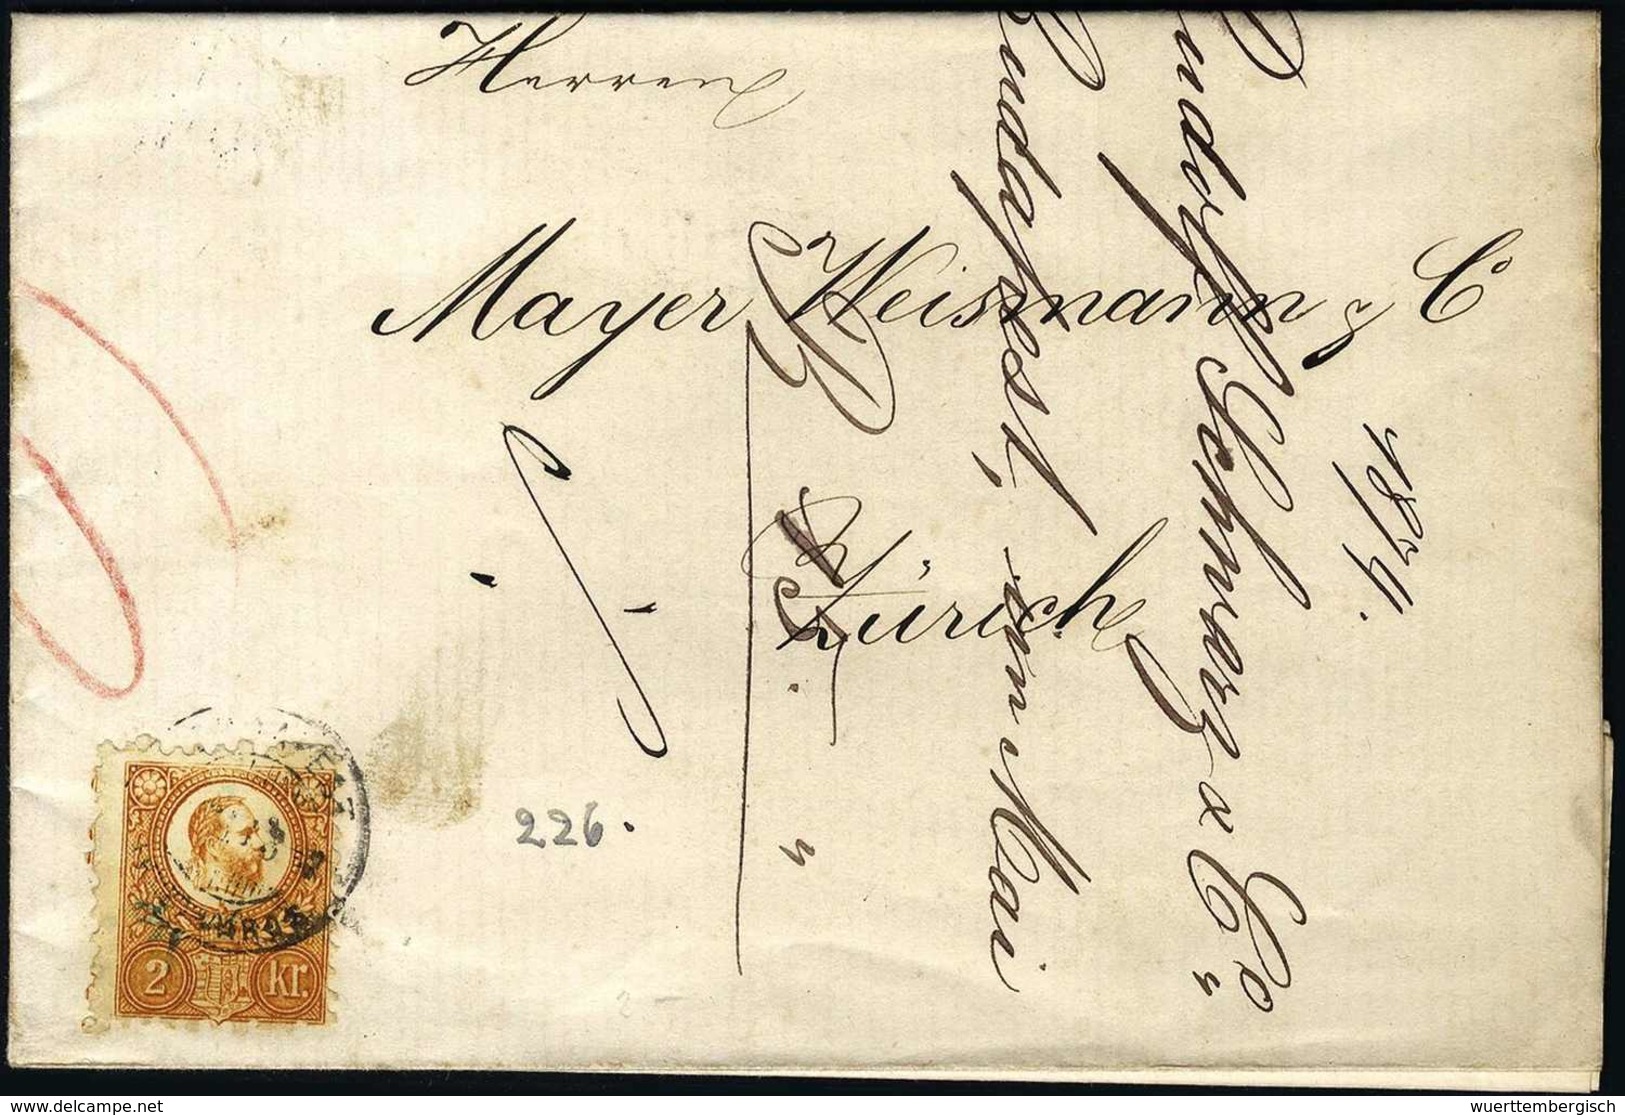 Herren
Mayer Weismann & Cº
Zürich
Rudolf Schwarz & Cº
Budapest, vom Mai
1874.
226.
2 kr.
delcampe.net
wuerttembergisch